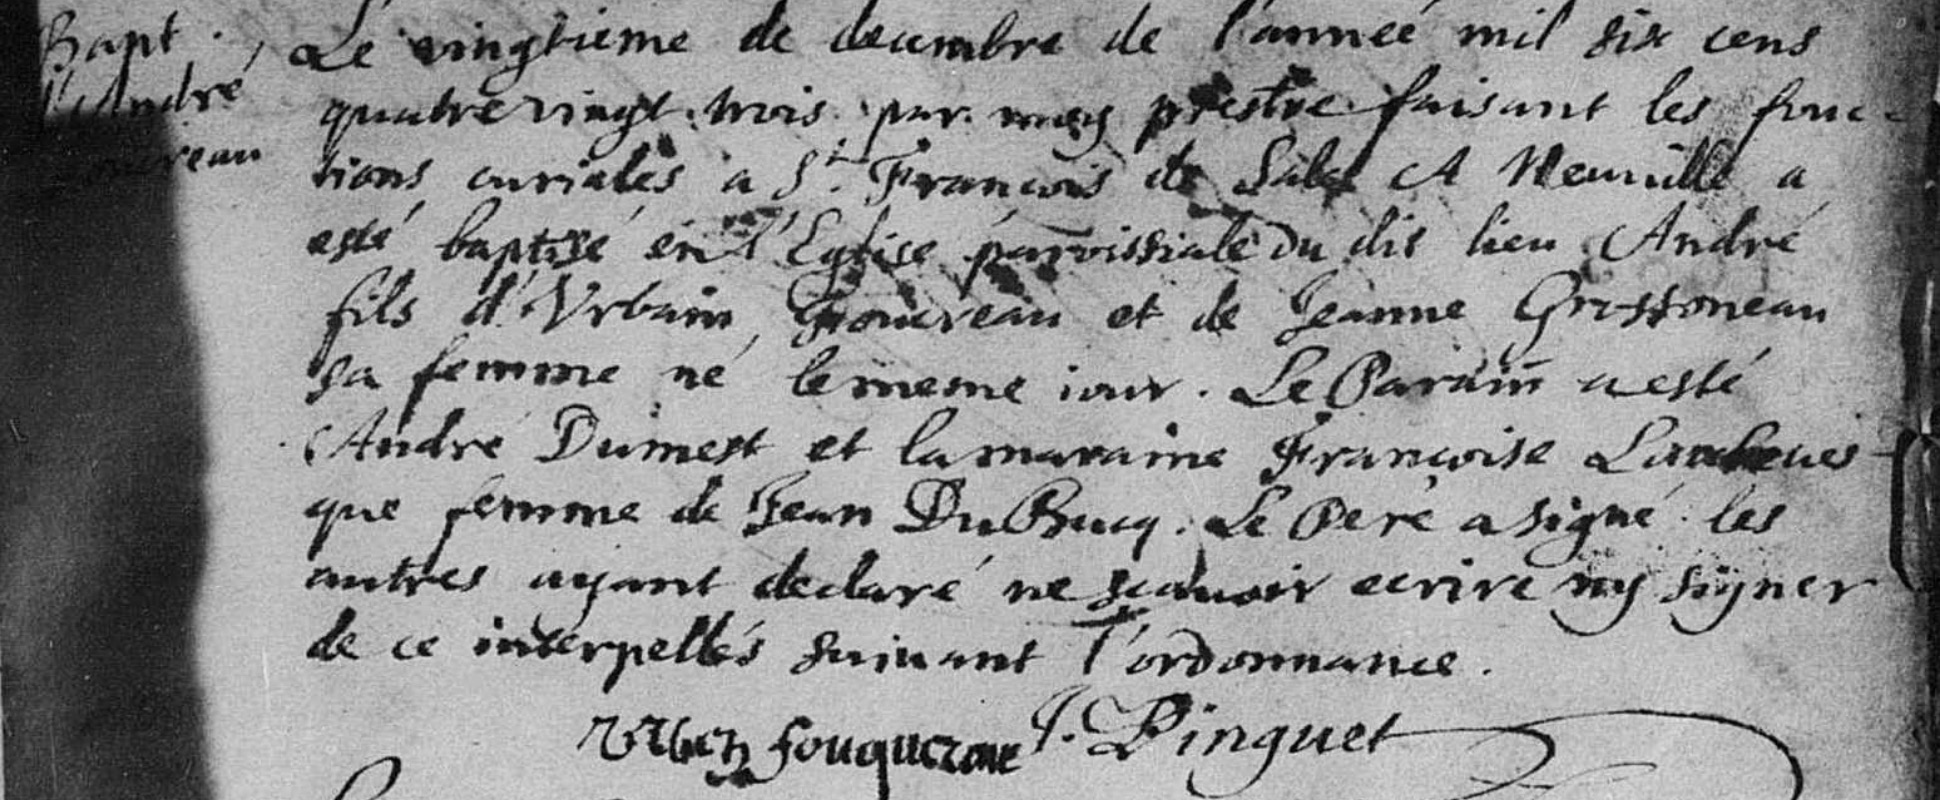 Bapt.
d'André
Le vingtieme de decembre de l'anneé mil six cens
quatre vingt trois par moy prestre faisant les fonc-
tions curiales a St. François de Sales A Neuville a
esté baptisé en l'Eglise paroissiale du dit lieu André
fils d'Urbain Fouquereau et de Jeanne Grossoneau
sa femme né le mesme iour. Le Parain a esté
André Dumest et la maraine Françoise Larcheves-
que femme de Jean Du Bucq. Le Pere a signé les
autres ayant declaré ne sçauoir ecrire ny signer
de ce interpellés suiuant l'ordonnance.
J. Pinguet